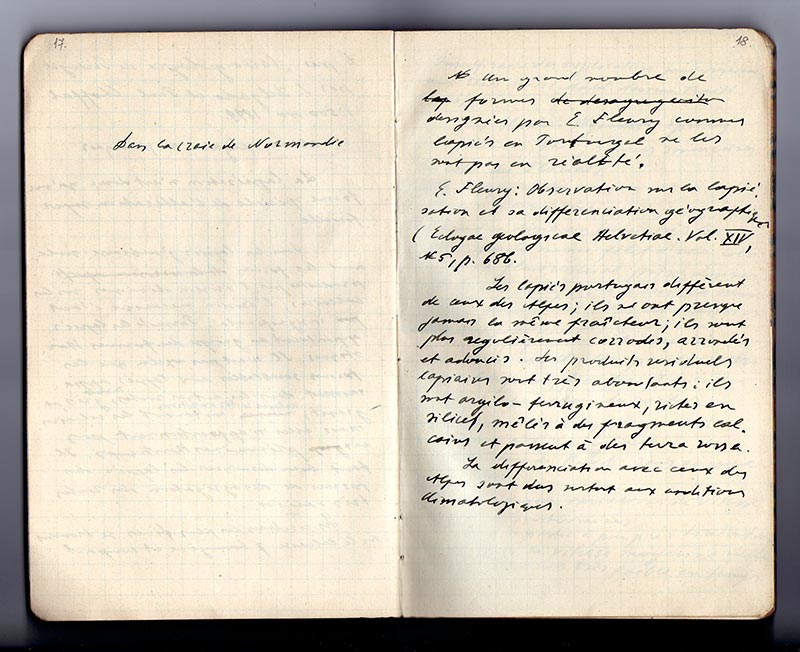 17.
Dans la craie de Normandie
18.
un grand nombre de
lap formes de desagregation
designées par E. Fleury comme
lapiés en Portugal ne les
sont pas en réalité.
E. Fleury: Observation sur la lapié-
sation et sa différenciation géographique
( Eclogae geological Helvetiae. Vol. XIV,
N 5, p. 686.
Les lapiés portugais diffèrent
de ceux des Alpes; ils ne ont presque
jamais la même fraîcheur; ils sont
plus regulièrement corrodes, arrondis
et adoucis. Les produits residuels
lapiaires sont très abondants: ils
sont argilo-ferrugineux, riches en
silices, mêlés à des fragments cal-
caires et passent à des terra rossa.
La differenciation avec ceux des
Alpes sont dus surtout aux conditions
climatologiques.